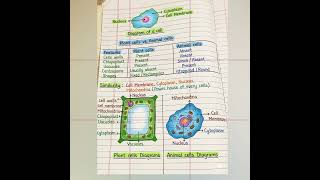 Cytoplasm
Nucleus
Cell Membrane
Diagram of a cell
Plant cells vs Animal cells
Features Plant cells Animal cells
Cells walls Present Absent
Chloroplast Present Absent
Vacuoles Present Small / Absent
Centrioles Usually absent Present
Shapes Fixed / Rectangular (Round)
Similarity : Cell Membrane, Cytoplasm, Nucleus,
Mitochondria (Power house of every cells)
Nucleus Mitochondria
Cell walls
Cell membrane
Mitochondria
Chloroplast
Vacuoles
Cytoplasm
Cell
Membrane
Cytoplasm
Vacuoles Nucleus
Plant cells Diagrams Animal cells Diagrams